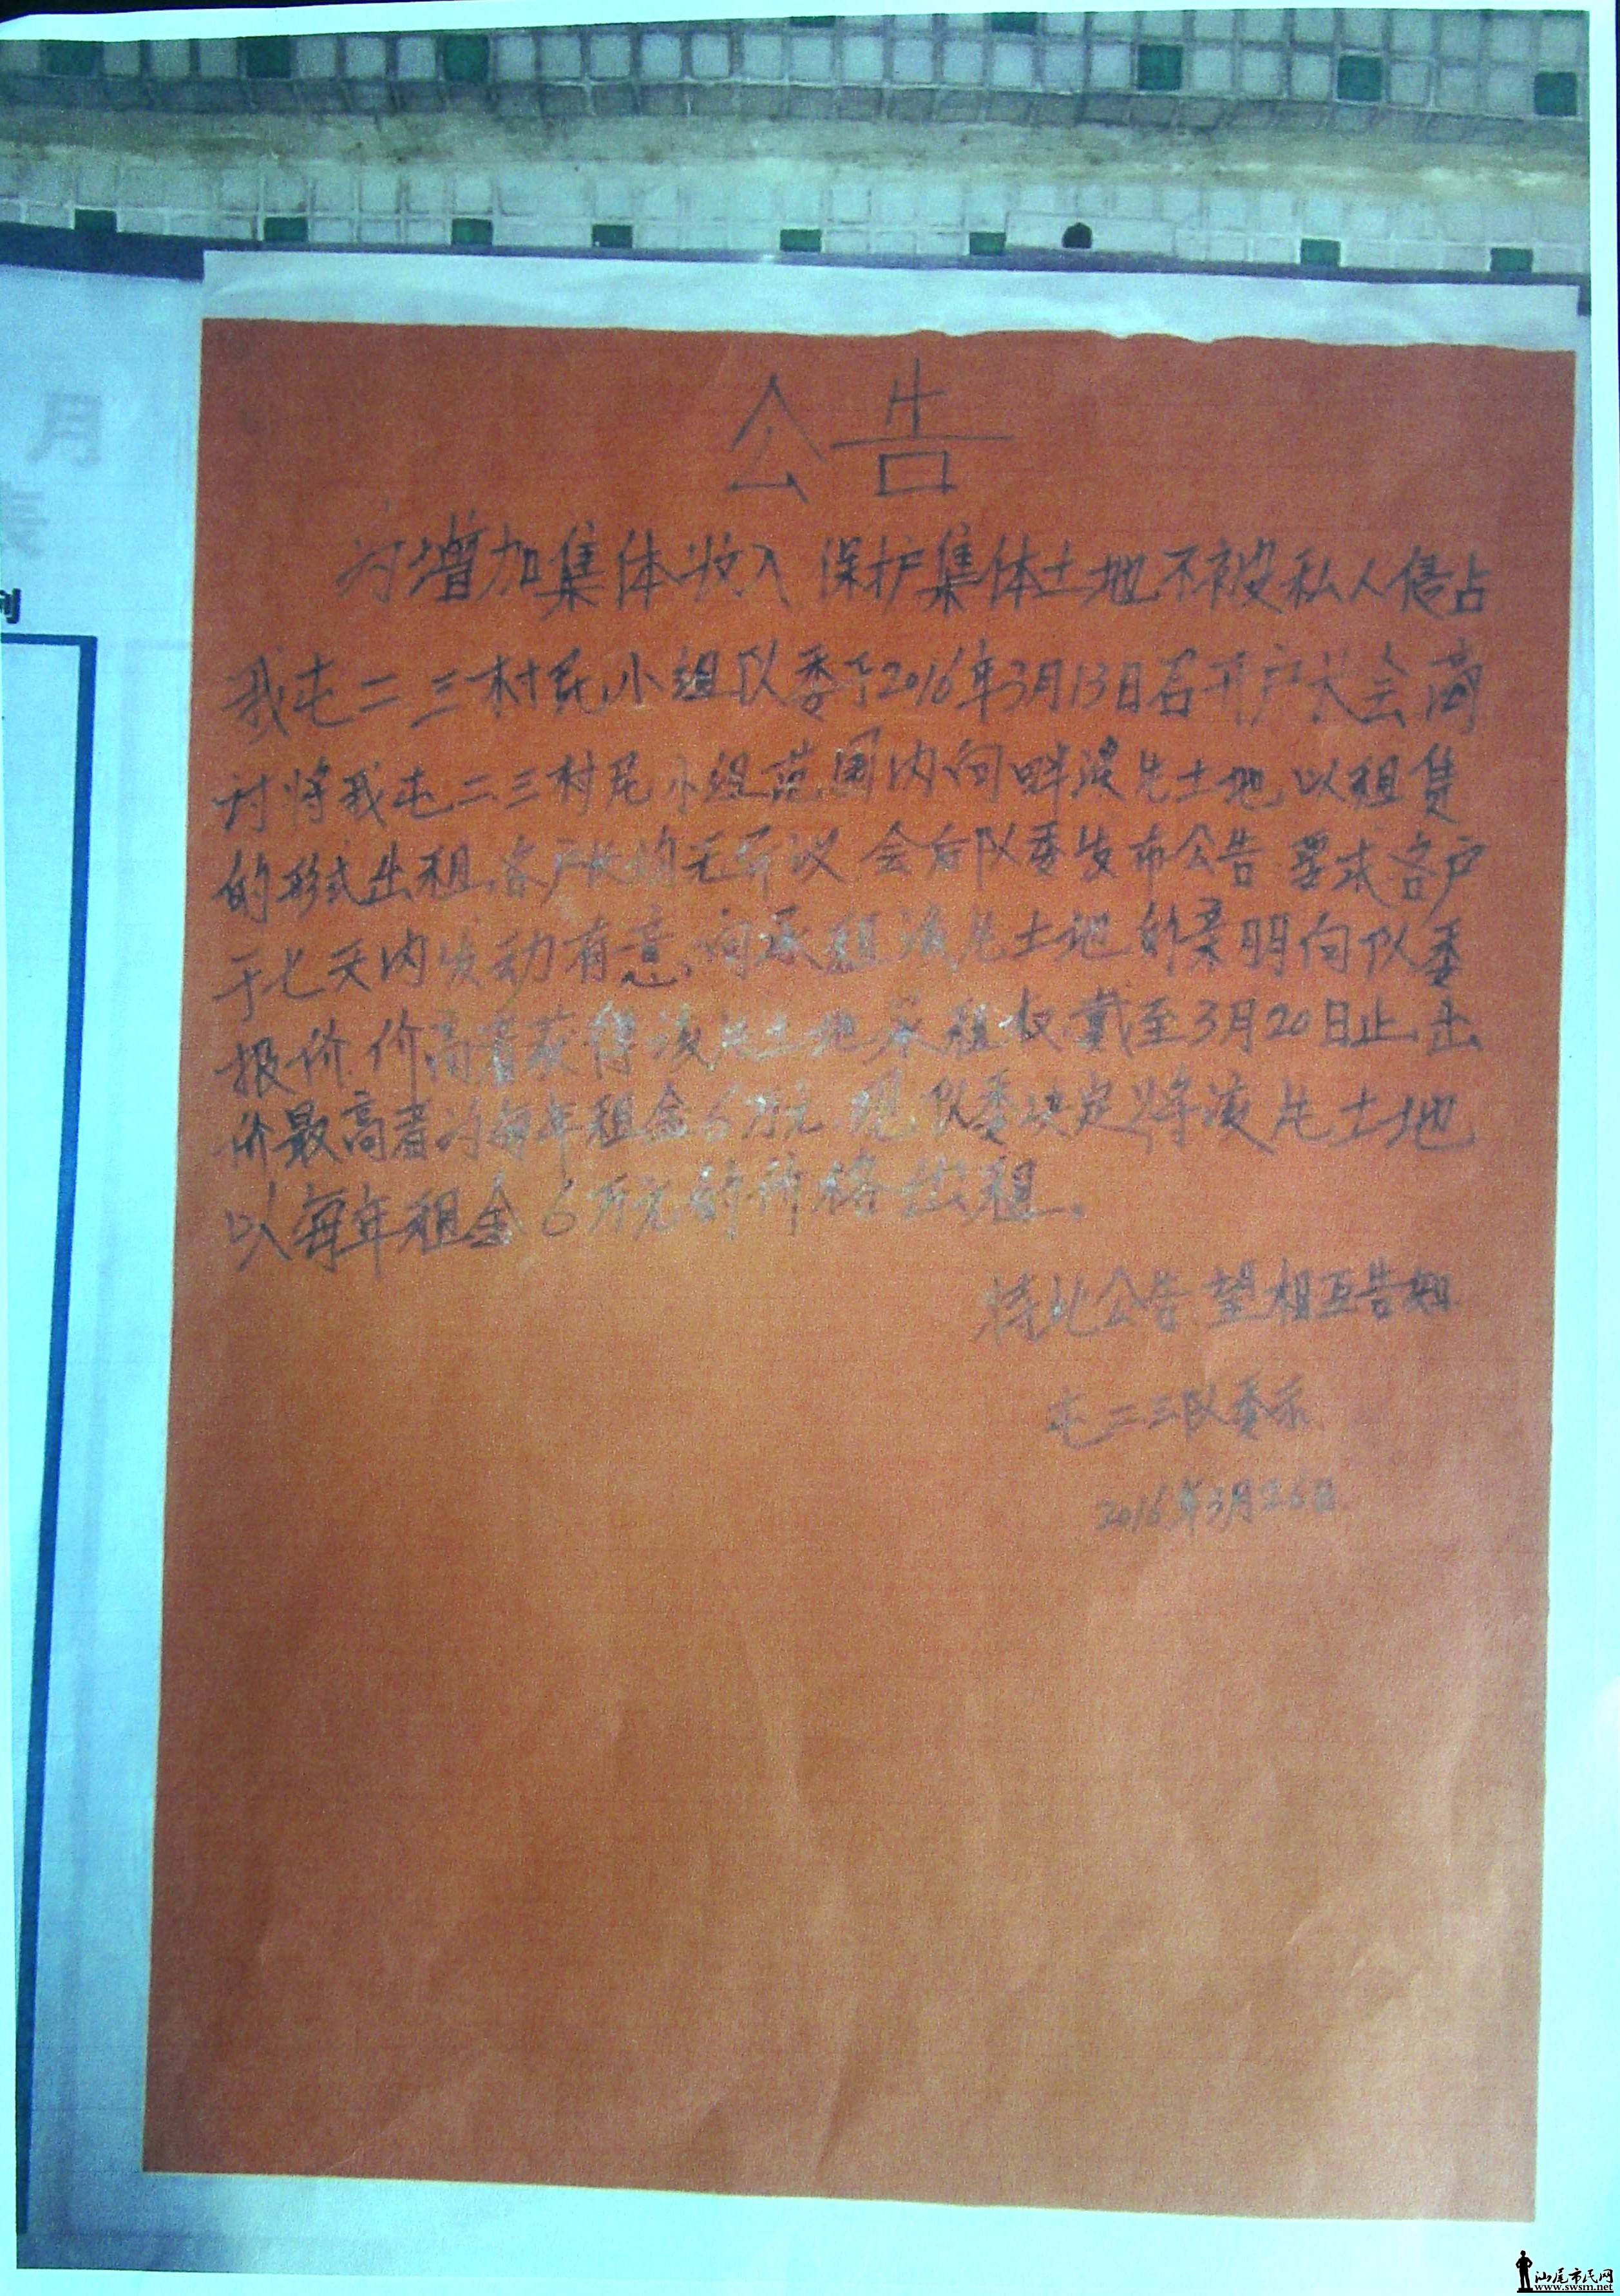 公告
为增加集体收入 保护集体土地不被私人侵占
我屯二三村民小组队委于2016年3月13日召开户长会商
讨将我屯二三村民小组范围内向畔滩片土地 以租赁
的形式出租 各户长均无异议 会后队委发布公告 要求各户
于七天内发动有意向承租该片土地的亲朋向队委
报价 价高者获得该片土地承租权 截至3月20日止 出
价最高者为每年租金6万元 现队委决定将该片土地
以每年租金6万元的价格出租。
特此公告 望相互告知
屯二三队委示
2016年3月26日
月
表
列
汕尾市民网
www.swsm.net